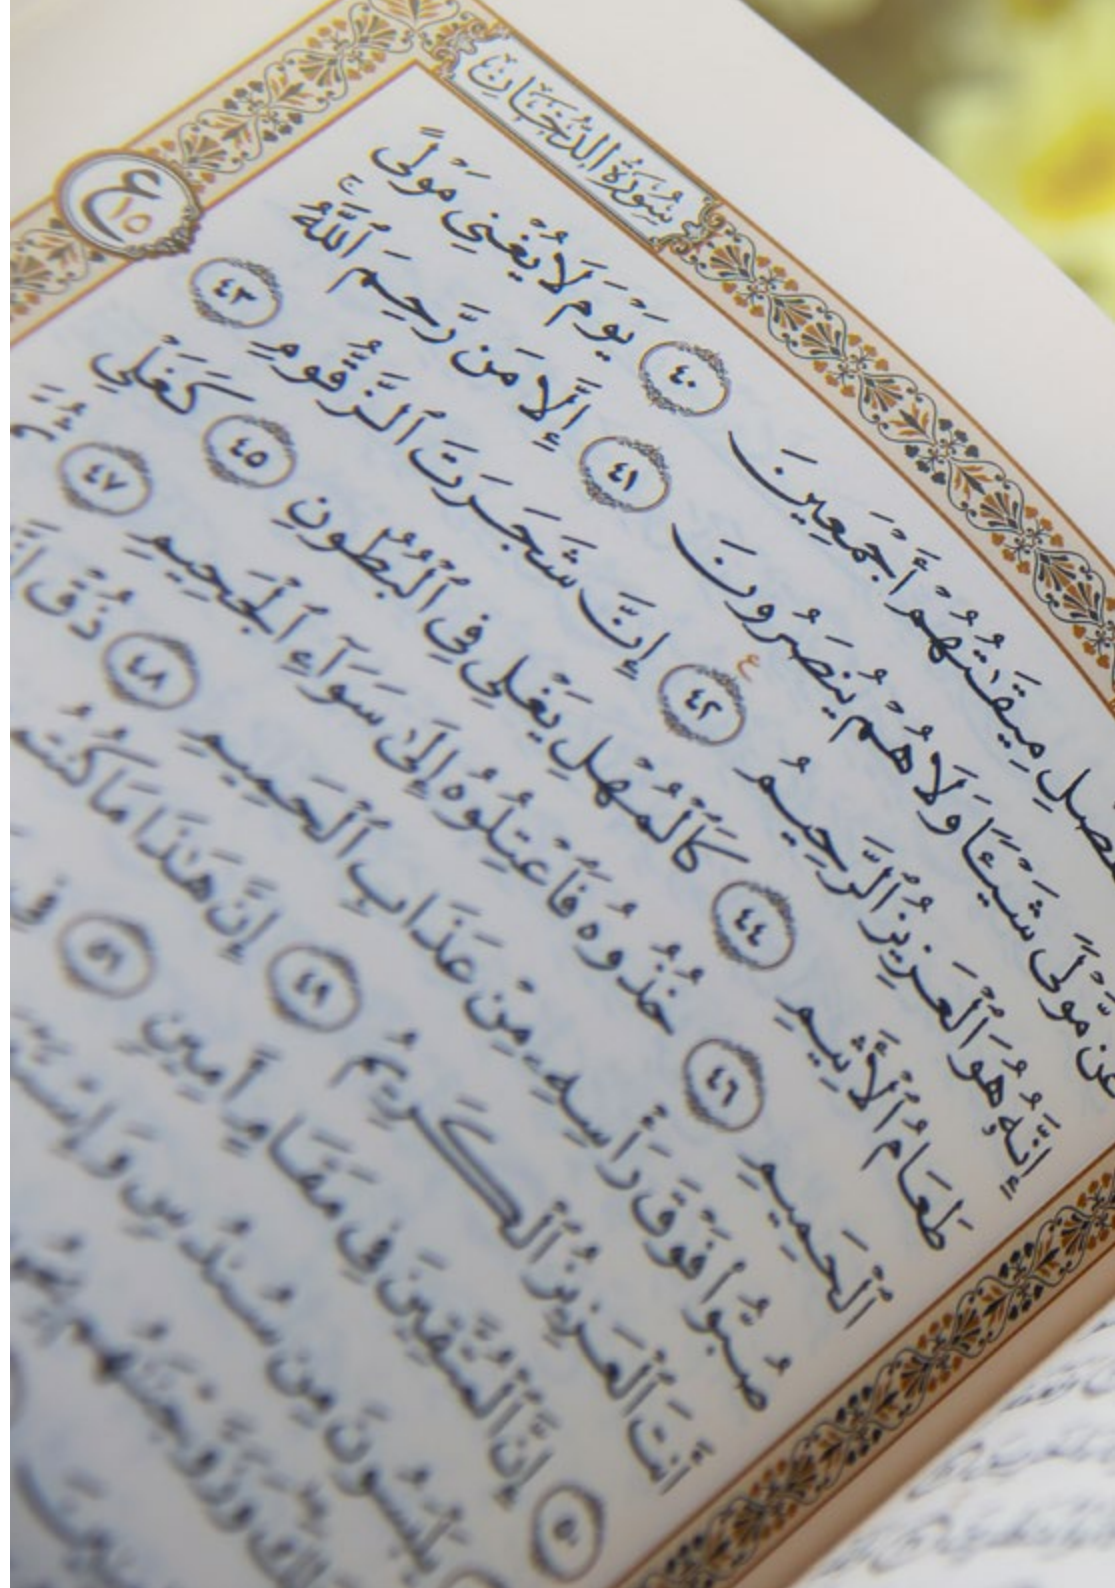 سُورَةُ الدُّخَانِ
ع ١٥
مِيقَـٰتُهُمْ أَجْمَعِينَ ٤٠ يَوْمَ لَا يُغْنِى مَوْلًى
عَن مَّوْلًى شَيْـًٔا وَلَا هُمْ يُنصَرُونَ ٤١ إِلَّا مَن رَّحِمَ ٱللَّهُ ۚ
إِنَّهُۥ هُوَ ٱلْعَزِيزُ ٱلرَّحِيمُ ٤٢ ع إِنَّ شَجَرَتَ ٱلزَّقُّومِ ٤٣
طَعَامُ ٱلْأَثِيمِ ٤٤ كَٱلْمُهْلِ يَغْلِى فِى ٱلْبُطُونِ ٤٥ كَغَلْىِ
ٱلْحَمِيمِ ٤٦ خُذُوهُ فَٱعْتِلُوهُ إِلَىٰ سَوَآءِ ٱلْجَحِيمِ ٤٧
صُبُّوا۟ فَوْقَ رَأْسِهِۦ مِنْ عَذَابِ ٱلْحَمِيمِ ٤٨ ذُقْ
أَنتَ ٱلْعَزِيزُ ٱلْكَرِيمُ ٤٩ إِنَّ هَـٰذَا مَا
٥٠ إِنَّ ٱلْمُتَّقِينَ فِى مَقَامٍ أَمِينٍ ٥١ فِى
يَلْبَسُونَ مِن سُندُسٍ
وَزَوَّجْنَـٰهُم